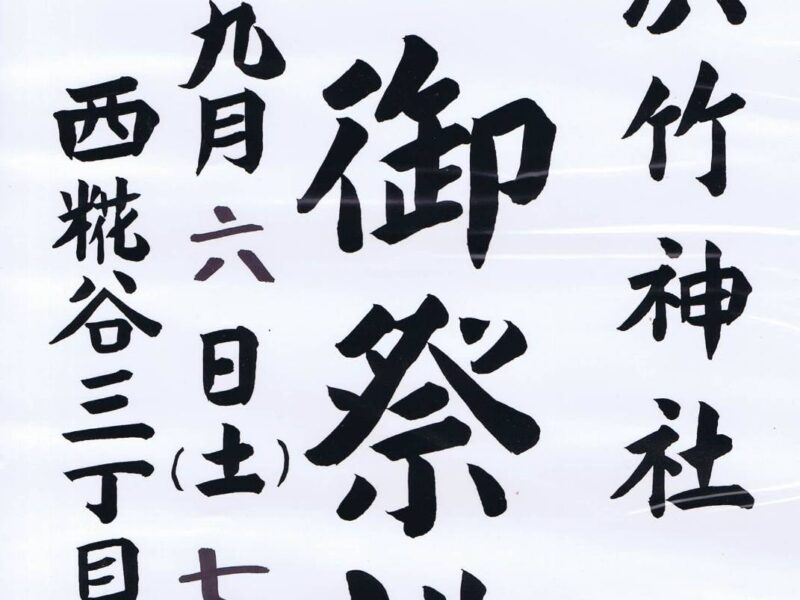 竹神社
御祭
九月六日(土)七
西糀谷三丁目